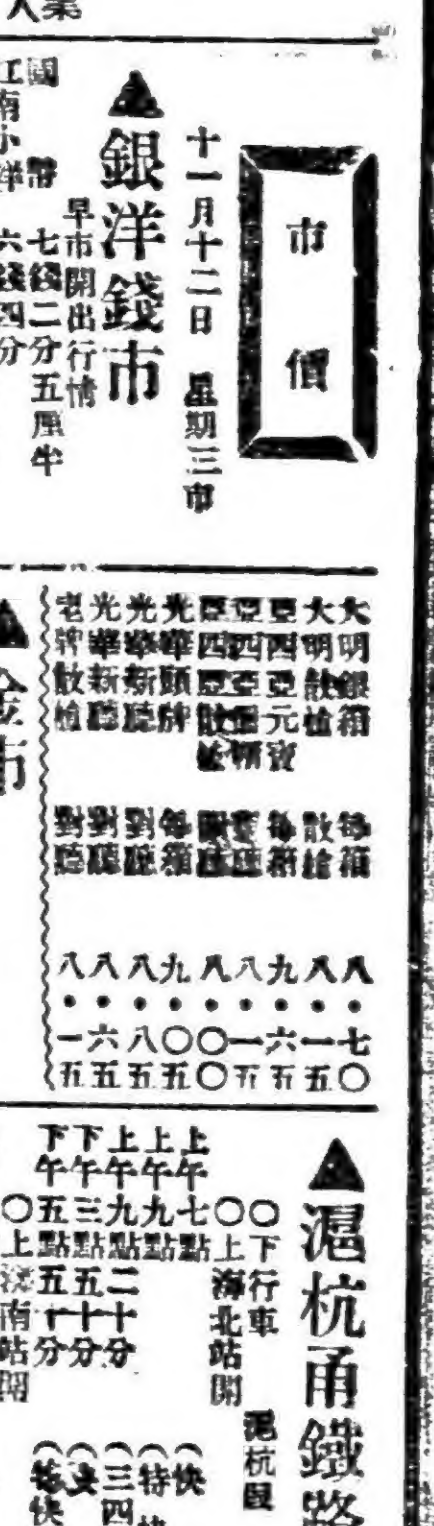 市價
十一月十二日　星期三市
▲銀洋錢市
早市開出行情
國幣　七錢二分五厘半
江南小洋　六錢四分
大明銀箱　每箱　八•七〇
大明散艙　散艙　八•一五
亞西亞元寶　每箱　九•六五
亞西亞　八•一五
亞西亞散艙　八•〇〇
光華頭牌　每箱　九•〇五
光華新聽　對聽　八•八五
光華新聽　對聽　八•六五
老牌散艙　對聽　八•一五
▲金市
▲滬杭甬鐵路
滬杭
〇下行車
〇上海北站開
上午七點　（快
上午九點　（特快
上午九點二十分　（三四
下午三點五十分
下午五點五十分　（特快
〇上海南站開